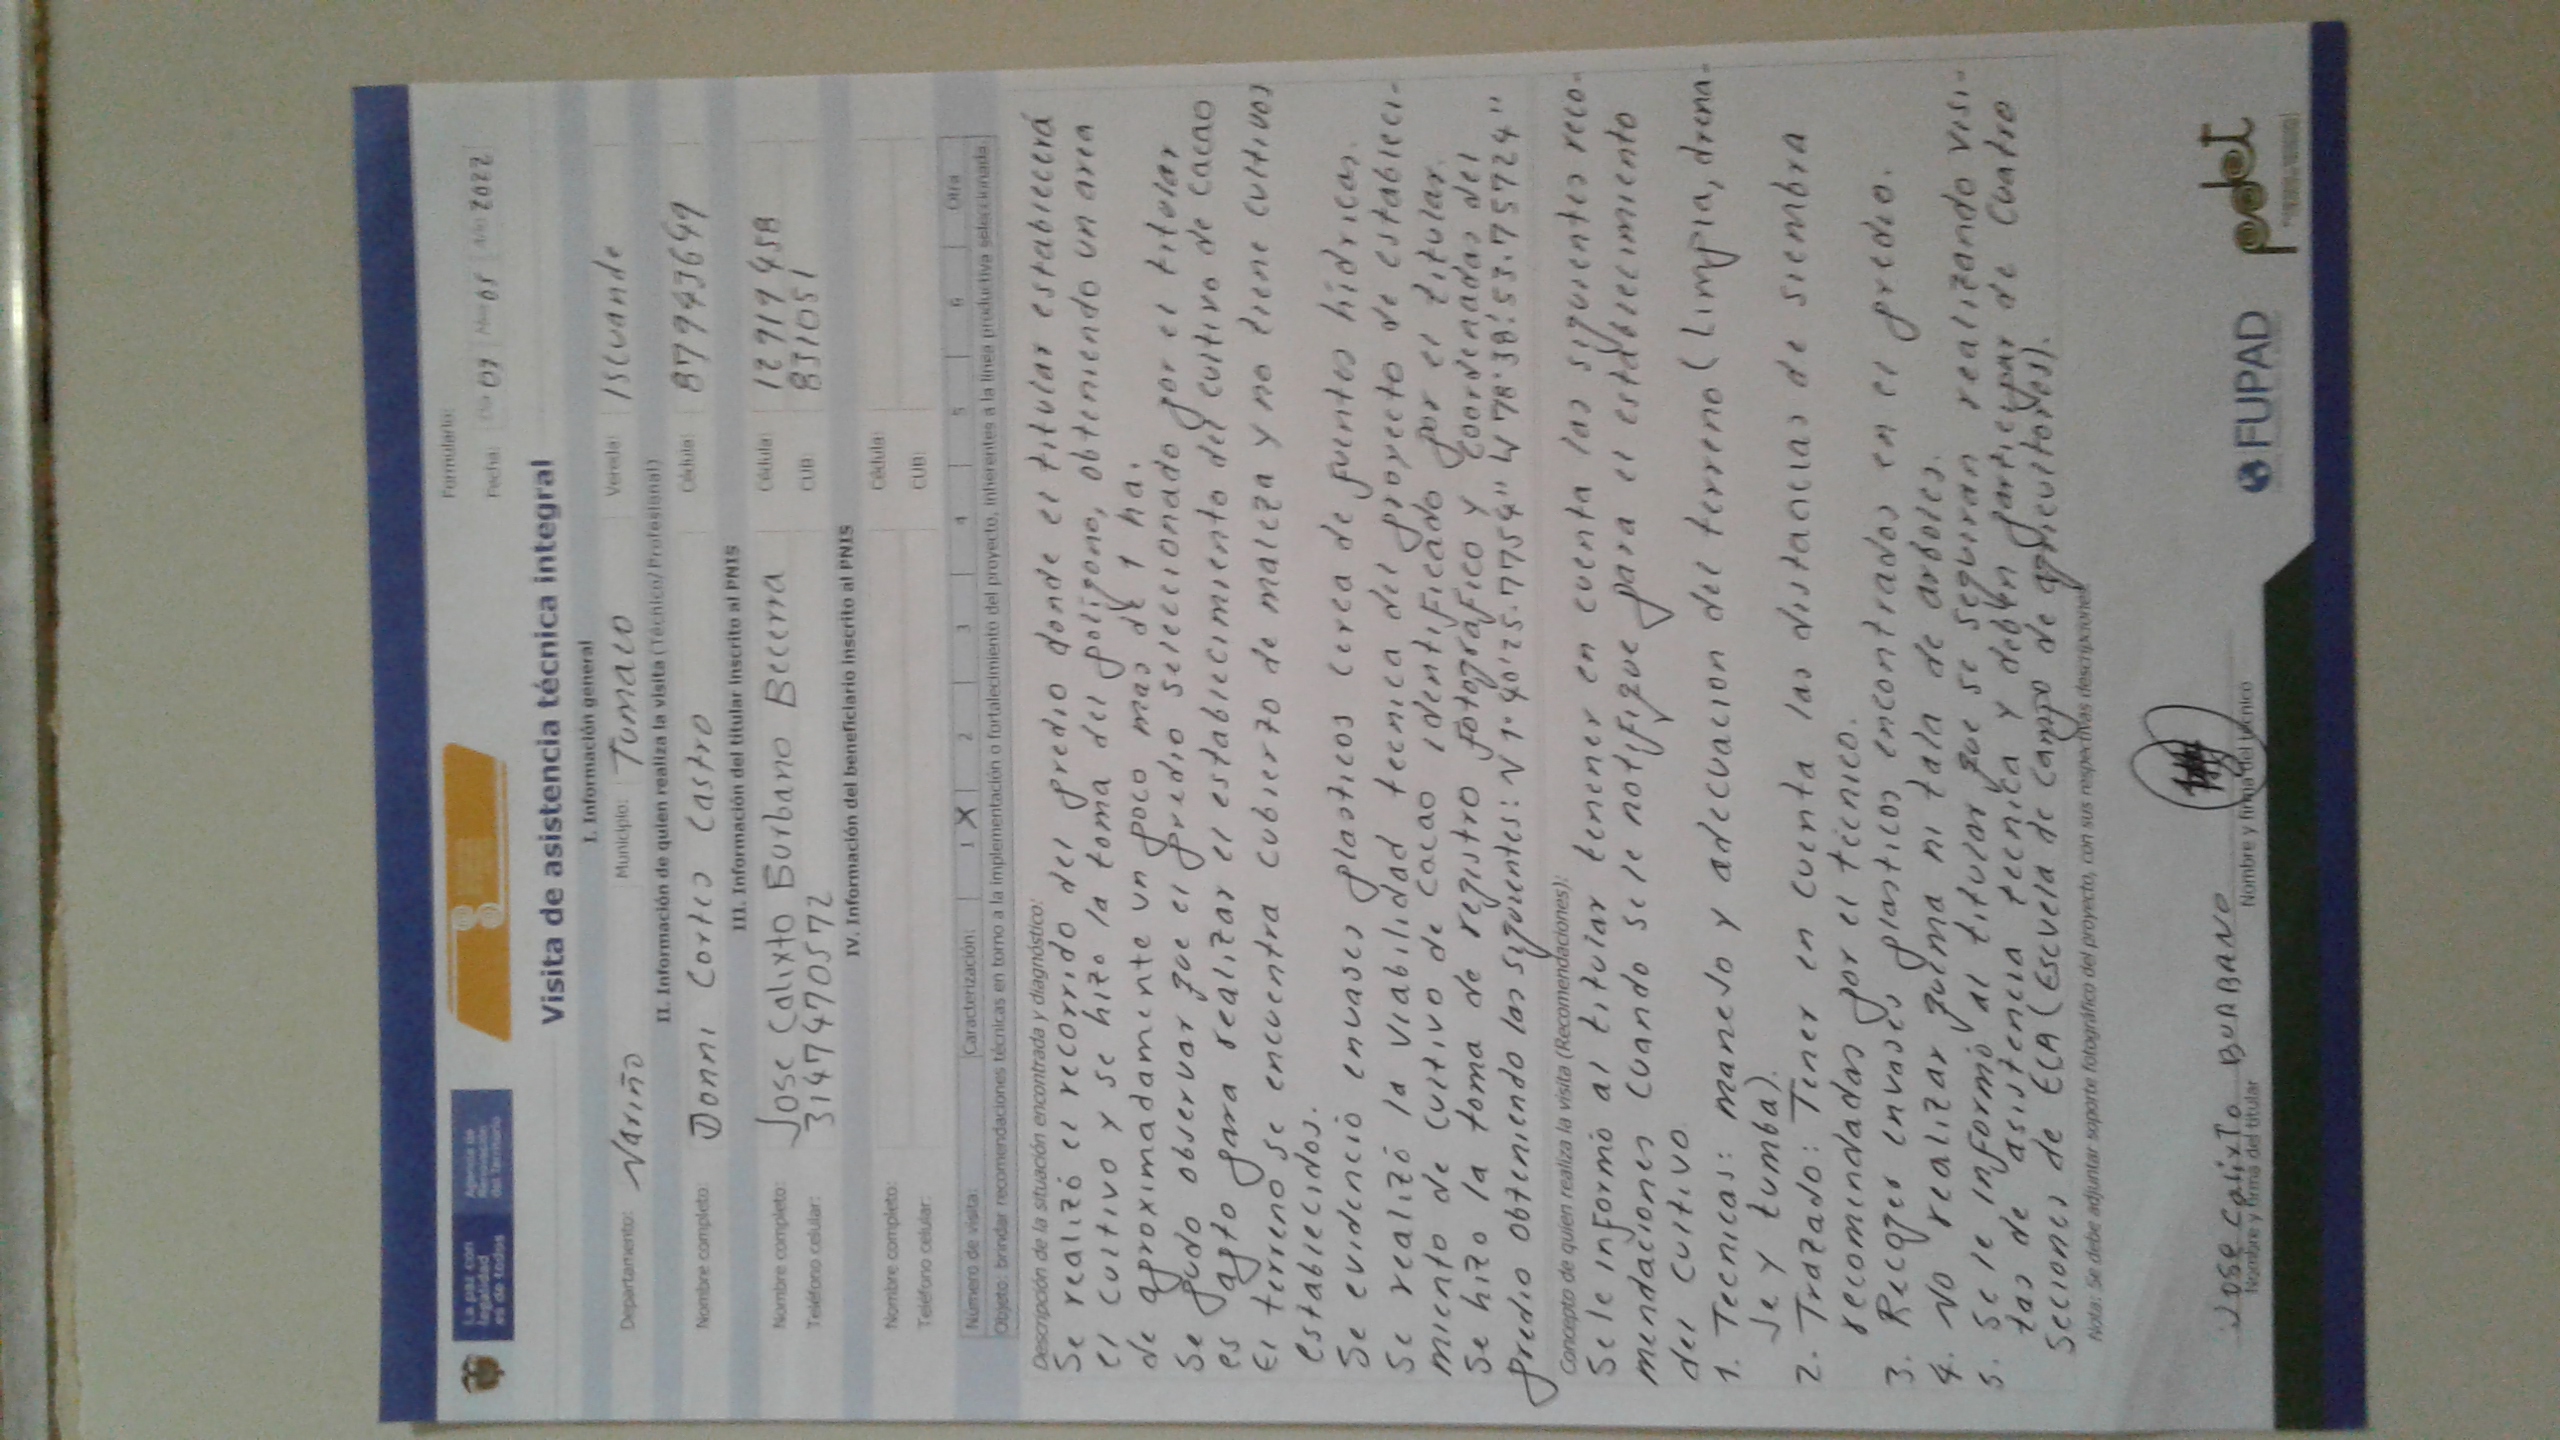 La paz con
legalidad
es de todos
Agencia de
Renovación
del Territorio
Formulario:
Fecha: Día 03 Mes 05 Año 2022
Visita de asistencia técnica integral
I. Información general
Departamento: Nariño Municipio: Tumaco Vereda: Iscuande
II. Información de quien realiza la visita (Técnico/Profesional)
Nombre completo: Donni Cortes Castro Cédula: 8799436 49
III. Información del titular inscrito al PNIS
Nombre completo: Jose Calixto Burbano Becerra Cédula: 12919458
Teléfono celular: 3147470572 CUB: 831051
IV. Información del beneficiario inscrito al PNIS
Nombre completo: Cédula:
Teléfono celular: CUB:
Número de visita: Caracterización: 1 X 2 3 4 5 6 Otra
Objeto: brindar recomendaciones técnicas en torno a la implementación o fortalecimiento del proyecto, inherentes a la línea productiva seleccionada
Descripción de la situación encontrada y diagnóstico:
Se realizó el recorrido del predio donde el titular establecerá
el cultivo y se hizo la toma del poligono, obteniendo un area
de aproximadamente un poco mas de 1 ha.
Se pudo observar que el predio seleccionado por el titular
es apto para realizar el establecimiento del cultivo de cacao
El terreno se encuentra cubierto de maleza y no tiene cultivos
establecidos.
Se evidenció envases plasticos cerca de fuentes hídricas.
Se realizó la viabilidad tecnica del proyecto de estableci-
miento de cultivo de cacao identificado por el titular.
Se hizo la toma de registro fotografico y coordenadas del
predio obteniendo las siguientes: N 1° 40'25.77754" W 78°38'53.75724"
Concepto de quien realiza la visita (Recomendaciones):
Se le informó al titular tenener en cuenta las siguientes reco-
mendaciones cuando se le notifique para el establecimiento
del cultivo
1. Tecnicas: manejo y adecuacion del terreno (Limpia, drena-
Je y tumba).
2. Trazado: Tener en cuenta las distancias de siembra
recomendadas por el técnico.
3. Recoger envases plasticos encontrados en el predio.
4. No realizar quema ni tala de arboles.
5. Se le informó al titular que se seguiran realizando visi-
tas de asistencia tecnica y debén participar de cuatro
Secciones de ECA (Escuela de campo de agricultores).
Nota: Se debe adjuntar soporte fotográfico del proyecto, con sus respectivas descripciones
Jose Calixto BURBANO
Nombre y firma del titular
Nombre y firma del técnico
FUPAD
pdet